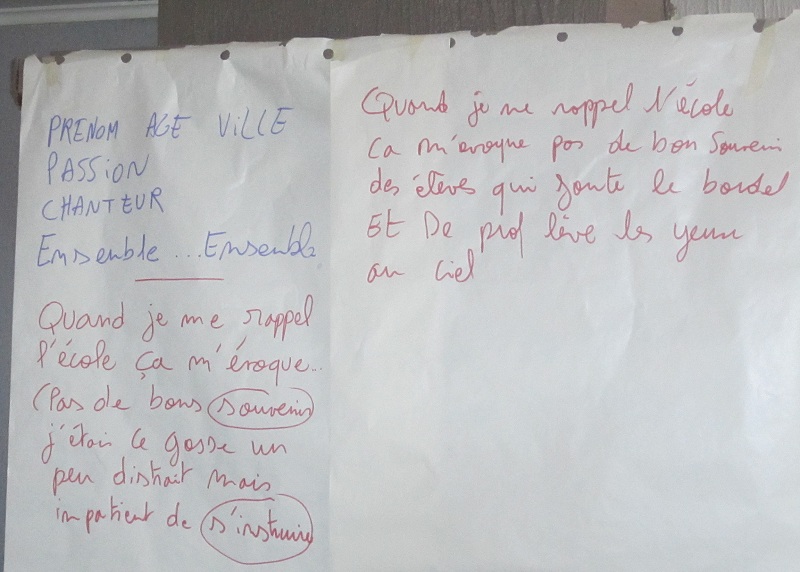 PRENOM AGE VILLE
PASSION
CHANTEUR
Ensemble ... Ensemble
Quand je me rappel
l'école ça m'évoque...
(Pas de bons souvenirs
j'étais ce gosse un
peu distrait mais
impatient de s'instruire
Quand je me rappel l'école
ca m'evoque pas de bon Souvenir
des élèves qui foute le bordel
Et De prof lève les yeux
au ciel